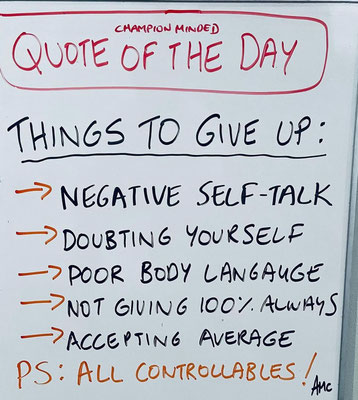 CHAMPION MINDED
QUOTE OF THE DAY
THINGS TO GIVE UP:
→ NEGATIVE SELF-TALK
→ DOUBTING YOURSELF
→ POOR BODY LANGAUGE
→ NOT GIVING 100% ALWAYS
→ ACCEPTING AVERAGE
PS: ALL CONTROLLABLES!
AMC